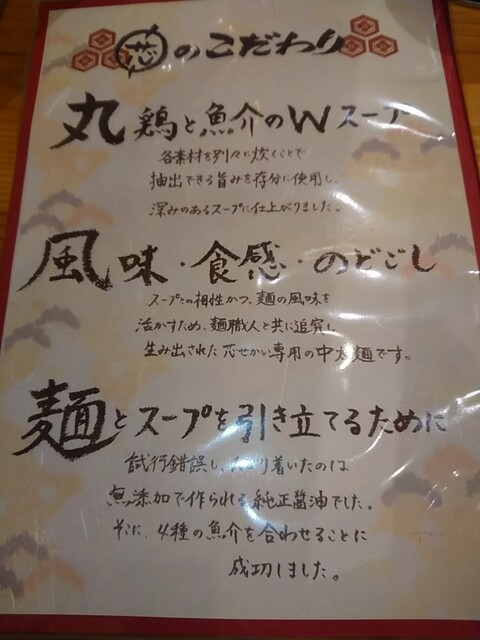 芯のこだわり
丸鶏と魚介のWスープ
各素材を別々に炊くことで
抽出できる旨みを存分に使用し、
深みのあるスープに仕上がりました。
風味・食感・のどごし
スープとの相性かつ、麺の風味を
活かすため、麺職人と共に追究し
生み出された芯せかい専用の中太麺です。
麺とスープを引き立てるために
試行錯誤し、たどり着いたのは
無添加で作られる純正醤油でした。
そこに、4種の魚介を合わせることに
成功しました。